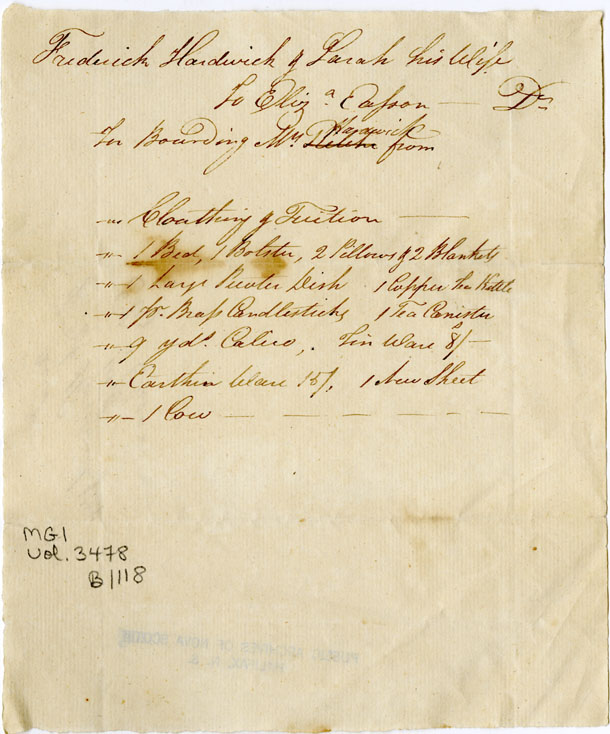 Frederick Hardwick & Sarah his Wife
To Eliz.a Easson — Dr
Hardwick
For Boarding Mrs from
"– Cloathing & Tuition —
"– 1 Bed, 1 Bolster, 2 Pillows & 2 Blankets
"– 1 Large Pewter Dish 1 Copper Tea Kettle
"– 1 pr. Brass Candlesticks 1 Tea Canister
"– 9 yds. Calico, Tin Ware 8/–
"– Earthin Ware 15/. 1 New Sheet
"– 1 Cow — — — — —
MG1
Vol. 3478
B/118
PUBLIC ARCHIVES OF NOVA SCOTIA
HALIFAX, N. S.